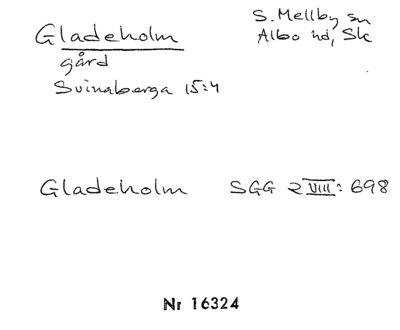 Gladeholm
gård
Svinaberga 15:4
S. Mellby sn
Albo hd, Sk
Gladeholm SGG 2 VIII: 698
Nr 16324